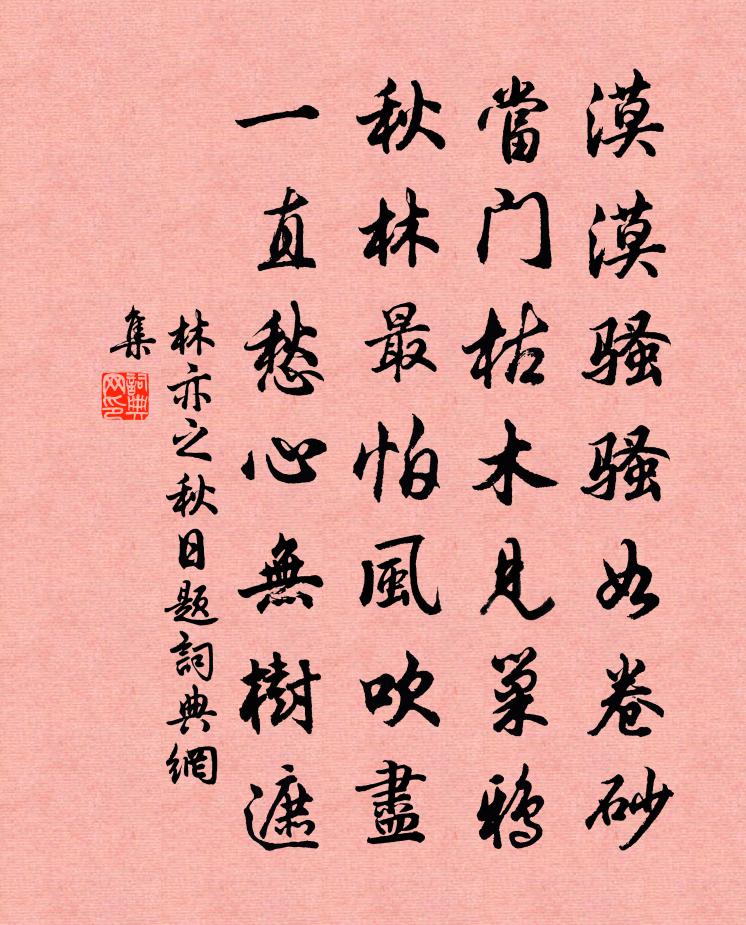 漠漠骚骚如卷砂
當门枯木見巢鴉
秋林最怕風吹盡
一直愁心無樹遮
林亦之秋日題詞典網
集
詞典
网印